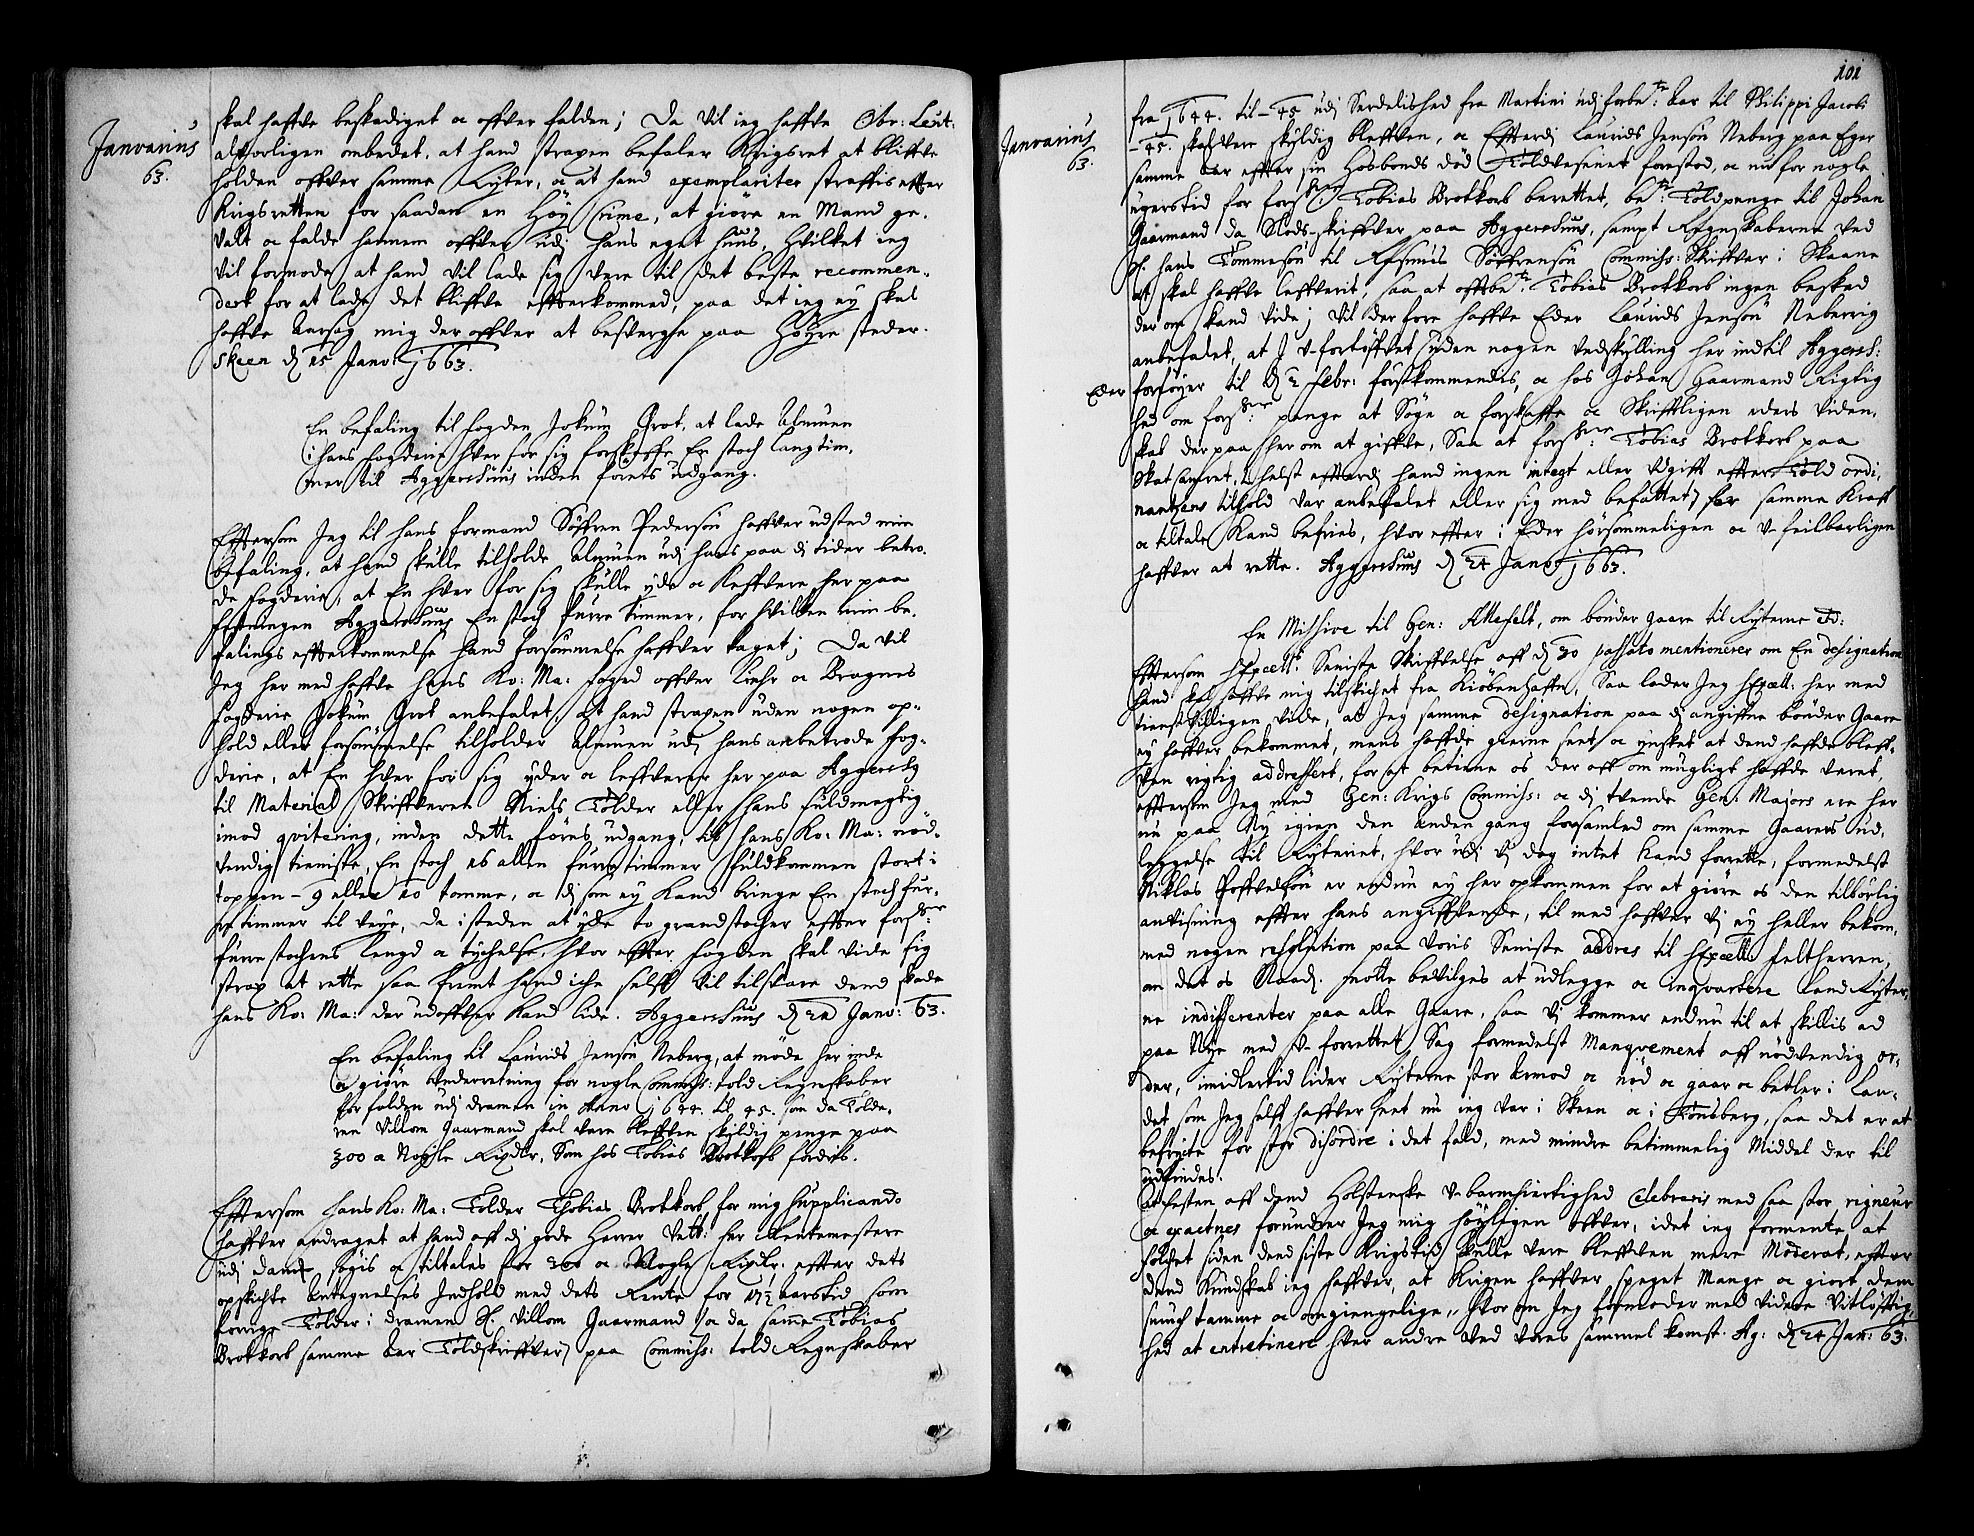 Januarius
63.
skal haffve beskadiget oc offver falden; Da vil ieg haffve Obr: Leüt:
alvorligen ombedet, at hand straxen befaler Krigsret at bliffve
holden offver samme Ryter, oc at hand exemplariter straffis effter
Krigsretten for saadan en Høy Crime, at giøre en Mand ge-
valt oc falde hannem offver udj hans eget huus, hvilket ieg
vil formode at hand vil lade sig vere til det beste recommen-
dert for at lade det bliffve effterkommed, paa det ieg ey skal
haffve Aarsag mig der offver at besverghe paa Høyre steder.
Skeen d 15 Janv: 1663.
En befaling til fogden Jokum Grot, at lade Almuen
i hans fogderie hver for sig forskaffe En stoch Langtim-
mer til Aggershuus inden forets udgang.
Efftersom Jeg til hans formand Søffren Pedersøn haffver udsted min
befaling, at hand skulle tilholde Almuen udj hans paa dj tider betro-
de fogderie, at En hver for sig skulle yde oc leffvere her paa
festningen Aggershuus En stoch furre timmer, for hvilken min be-
falings effterkommelse hand forsømmelse haffver taget; Da vil
Jeg her med haffve hans Ko: Ma: foged offver Lier oc Bragnes
fogderie Jokum Grot anbefalet, at hand straxen uden nogen op-
hold eller forsømmelse tilholder Almuen udj hans anbetrode fog-
derie, at En hver for sig yder oc leffverer her paa Aggersh:
til Material Skriffveren Niels Tolder eller hans fuldmegtig
imod qvitering, inden dette føris udgang, til hans Ko: Ma: nød-
vendig tienniste, En stoch 16 allen furre timmer fuldkommen stort i
toppen - 9 eller 10 tomme, oc dj som ey kand bringe En stoch fur-
re timmer til veye, da i steden at yde to grandstocher effter forsne
furre stochens lengd oc tychelse, hvor effter fogden skal vide sig
strax at rette saa fremt hand iche selff vil tilsvare dend skade
hans Ko: Ma: der udoffver kand lide. Aggershuus d 21 Janv: 63.
En befaling til Laurids Jensøn Neberg, at møde her inde
oc giøre Underretning for nogle Commiss: told Regnskaber
forfalden udj dramen in Anno 1644. til 45. som da Tolde-
ren Villom Gaarmand skal vere bleffven skyldig penge paa
300 oc Nogle Rixdlr, som hos Tobias Brotkorb fordris.
Efftersom hans Ko: Ma: Tolder Thobias Brotkorb for mig supplicando
haffver andraget at hand aff dj gode Herrer Vett: her Rentemestere
udj danmk søgis oc tiltales for 300 oc Nogle Rixdlr: effter dets
opskichte Antegnelses Indhold med dets Rente for 17½ Aarstid som
forrige Tolder i dramen S. Villom Gaarmand (oc da samme Tobias
Brotkorb samme Aar Toldskriffver) paa Commiss: told Regnskaber
101
Januarius
63.
fra 1644. til - 45 udj Serdelished fra Martini udj forbe.te Aar til Philippi Jacobi
- 45. skal vere skyldig bleffven, oc Efftterdi Laurids Jensøn Neberg paa Eger
samme Aar effter sin Hosbonds død Toldvesenet forestod, oc nu for nogle
ugerstid for forsne Tobias Brotkorb berettet, bete: Toldpenge til Johan
Gaarmand da Slods-skriffver paa Aggershuus, sampt Regnskaberne ved
S. hans Tommesøn til Rasmus Søffrensøn Commiss: Skriffver i Skaane
at skal haffve leffverit, saa at offtbe.te: Tobias Brotkorb ingen besked
der om kand vide; Vil der fore haffve Eder Laurids Jensøn Neberrig
anbefalet, at J u-fortøffvet uden nogen undskylling her indtil Aggersh:
Eder forføyer til d 2 Febr: førstkommendis, oc hos Johan Gaarmand Rigtig
hed om forsne penge at søge oc forskaffe oc Skrifftligen eders Viden-
skab der paa her om at giffve, Saa at forsne: Tobias Brotkorb paa
helst efftterdj hand ingen integt eller udgifft effter Told ordi-
nantzens tilhold var anbefalet eller sig med befattet) for samme Kraff
oc tiltale kand befries, hvor effter i Eder hørsommeligen oc u-feilbarligen
haffver at rette. Aggershuus d 24 Janv: 1663.
En Missive til Gen: Allefelt, om bønder gaare til Ryterne etc:
Efftersom hExcell: Seniste Skriffvelse aff d 30 passato mentionerer om En designation
hand skal haffve mig tilskichet fra Kiøbenhaffn, Saa lader Jeg hExcell: her med
tienstvilligen vide, at Jeg samme designation paa dj angiffne bønder Gaare
ey haffver bekommet, mens haffde gierne seet oc ynsket at dend haffde bleff-
ven rigtig addressert, for at betiene os der aff om mugligt haffde veret,
efftersom Jeg med Gen: Krigs Commiss: oc dj tvende Gen: Majors ere her
nu paa Ny igien den anden gang forsamled om samme Gaarers ud-
leggelse til Ryteriet, hvor udj vj dog intet kand forrette, formedelst
Niklas Poffvelsøn er endnu ey her opkommen for at giøre os den tilbørlig
anvisning effter hans angiffvende, til med haffver vj ey heller bekom-
med nogen resolution paa voris Seniste addres til hExcell: feltherren,
om det os Naadj. motte bevilges at udlegge oc inqvartere Land Ryter-
ne indifferenter paa alle Gaare, saa vj kommer endnu til at skillis ad
paa Nye med U-forrettet Sag formedelst Manqvement aff nødvendig or-
der, imidlertid lider Ryterne stor Armod oc nød oc gaar oc betler i Lan-
det, som Jeg selff haffver seet nu ieg var i Skeen oc i Tonsberg, saa det er at
befrycte for stor disordre i det fald, med mindre betimmelig Middel der til
udfindes.
At hesten aff dend Holstenske u-barmhiertighed celebreris med saa stor rigneur
oc exactnes forundrer Jeg mig høyligen offver, idet ieg formente at
folchet siden dend siste Krigstid skulle vere bleffven mere Moderat, effter
dend Kundskab ieg haffver, at Krigen haffver speget Mange oc giort dem
smuch tamme oc omgiengelige, hvor om Jeg formoder med videre Vitløfftig-
hed at entretinere hver andre ved vores sammel komst. Ag: d 24 Jan: 63.